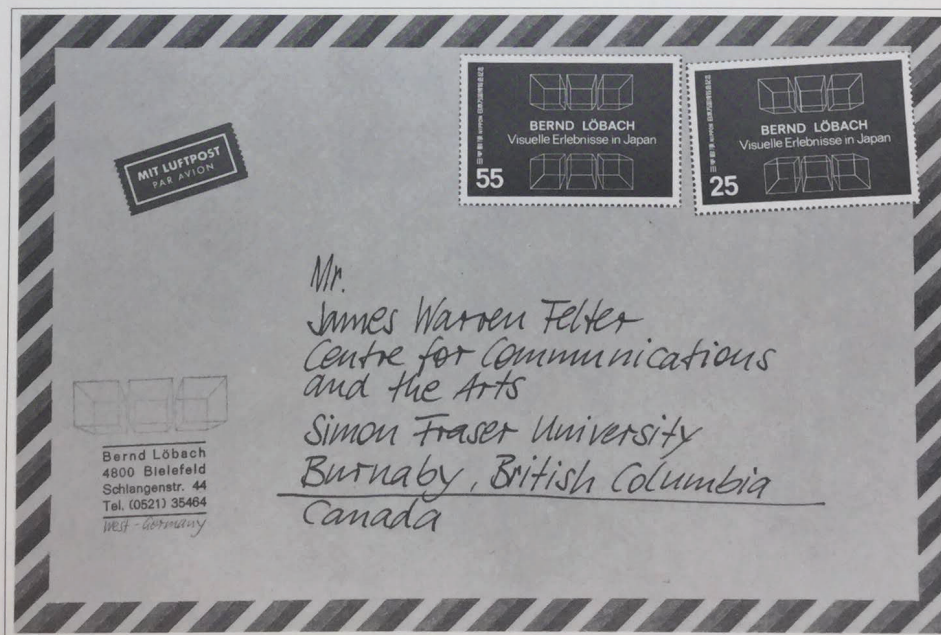 BERND LÖBACH
Visuelle Erlebnisse in Japan
55
BERND LÖBACH
Visuelle Erlebnisse in Japan
25
MIT LUFTPOST
PAR AVION
Mr.
James Warren Felter
Centre for Communications
and the Arts
Simon Fraser University
Burnaby, British Columbia
Canada
Bernd Löbach
4800 Bielefeld
Schlangenstr. 44
Tel. (0521) 35464
West-Germany